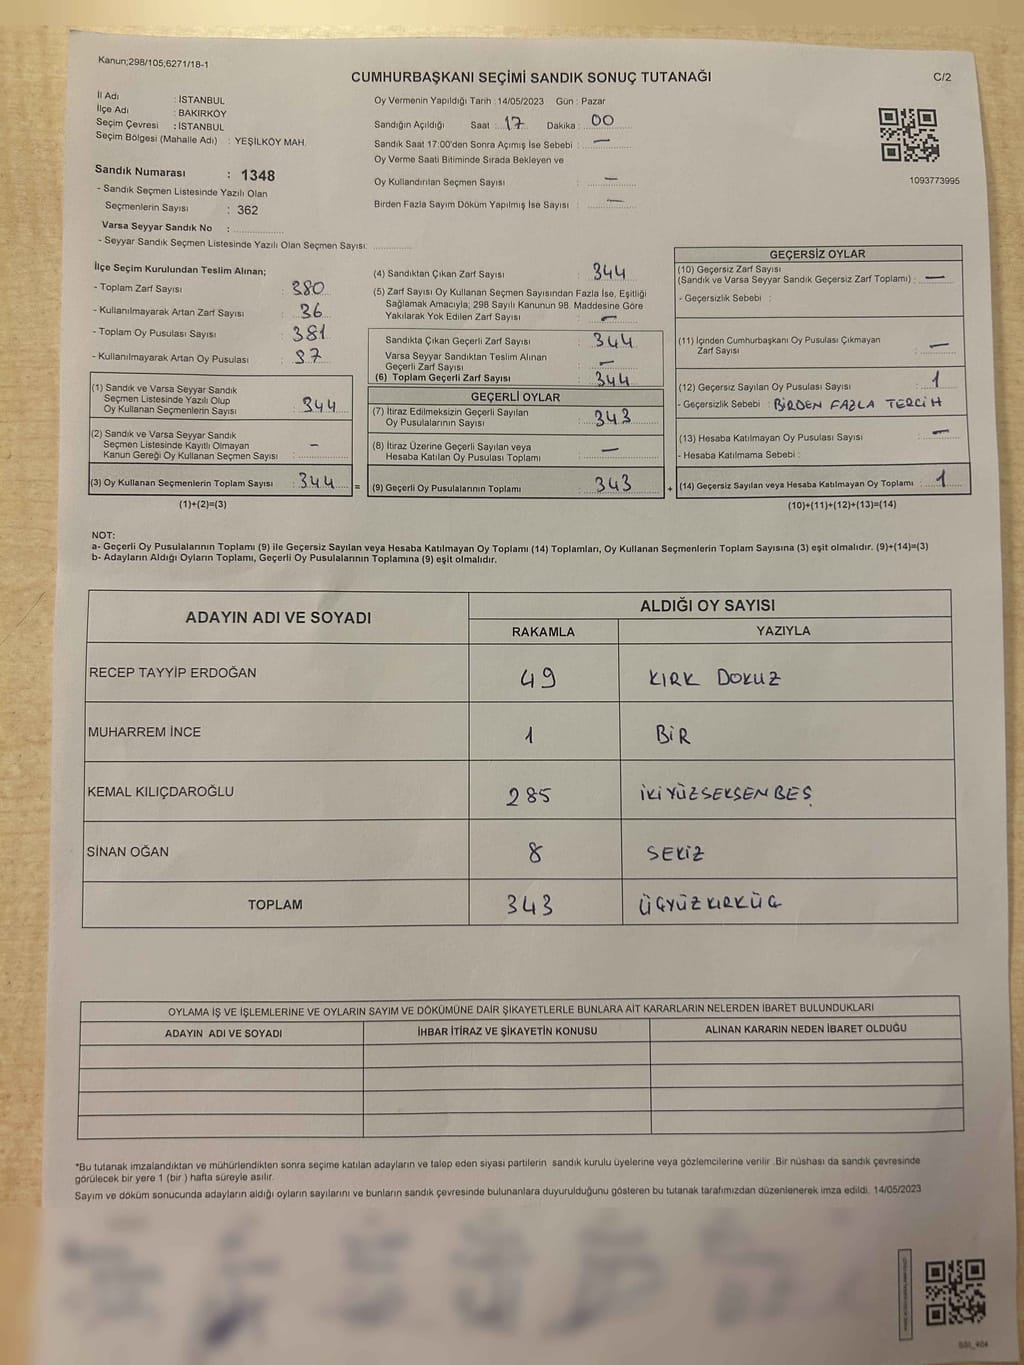 Kanun;298/105;6271/18-1
CUMHURBAŞKANI SEÇİMİ SANDIK SONUÇ TUTANAĞI
C/2
İl Adı : İSTANBUL
İlçe Adı : BAKIRKÖY
Seçim Çevresi : İSTANBUL
Seçim Bölgesi (Mahalle Adı) : YEŞİLKÖY MAH.
Oy Vermenin Yapıldığı Tarih :14/05/2023 Gün : Pazar
Sandığın Açıldığı Saat :..17.. Dakika :..00..
Sandık Saat 17:00'den Sonra Açımış İse Sebebi : —
Oy Verme Saati Bitiminde Sırada Bekleyen ve
Oy Kullandırılan Seçmen Sayısı : —
Birden Fazla Sayım Döküm Yapılmış İse Sayısı : —
1093773995
Sandık Numarası : 1348
- Sandık Seçmen Listesinde Yazılı Olan
Seçmenlerin Sayısı : 362
Varsa Seyyar Sandık No :
- Seyyar Sandık Seçmen Listesinde Yazılı Olan Seçmen Sayısı:
İlçe Seçim Kurulundan Teslim Alınan;
- Toplam Zarf Sayısı : 380
- Kullanılmayarak Artan Zarf Sayısı : 36
- Toplam Oy Pusulası Sayısı : 381
- Kullanılmayarak Artan Oy Pusulası : 37
(1) Sandık ve Varsa Seyyar Sandık
Seçmen Listesinde Yazılı Olup
Oy Kullanan Seçmenlerin Sayısı : 344
(2) Sandık ve Varsa Seyyar Sandık
Seçmen Listesinde Kayıtlı Olmayan
Kanun Gereği Oy Kullanan Seçmen Sayısı : —
(3) Oy Kullanan Seçmenlerin Toplam Sayısı : 344 =
(1)+(2)=(3)
(4) Sandıktan Çıkan Zarf Sayısı : 344
(5) Zarf Sayısı Oy Kullanan Seçmen Sayısından Fazla İse, Eşitliği
Sağlamak Amacıyla, 298 Sayılı Kanunun 98. Maddesine Göre
Yakılarak Yok Edilen Zarf Sayısı : —
Sandıkta Çıkan Geçerli Zarf Sayısı : 344
Varsa Seyyar Sandıktan Teslim Alınan
Geçerli Zarf Sayısı : —
(6) Toplam Geçerli Zarf Sayısı : 344
GEÇERLİ OYLAR
(7) İtiraz Edilmeksizin Geçerli Sayılan
Oy Pusulalarının Sayısı : 343
(8) İtiraz Üzerine Geçerli Sayılan veya
Hesaba Katılan Oy Pusulası Toplamı : —
(9) Geçerli Oy Pusulalarının Toplamı : 343 +
GEÇERSİZ OYLAR
(10) Geçersiz Zarf Sayısı
(Sandık ve Varsa Seyyar Sandık Geçersiz Zarf Toplamı) : —
- Geçersizlik Sebebi :
(11) İçinden Cumhurbaşkanı Oy Pusulası Çıkmayan
Zarf Sayısı : —
(12) Geçersiz Sayılan Oy Pusulası Sayısı : 1
- Geçersizlik Sebebi : BİRDEN FAZLA TERCİH
(13) Hesaba Katılmayan Oy Pusulası Sayısı : —
- Hesaba Katılmama Sebebi :
(14) Geçersiz Sayılan veya Hesaba Katılmayan Oy Toplamı : 1
(10)+(11)+(12)+(13)=(14)
NOT:
a- Geçerli Oy Pusulalarının Toplamı (9) ile Geçersiz Sayılan veya Hesaba Katılmayan Oy Toplamı (14) Toplamları, Oy Kullanan Seçmenlerin Toplam Sayısına (3) eşit olmalıdır. (9)+(14)=(3)
b- Adayların Aldığı Oyların Toplamı, Geçerli Oy Pusulalarının Toplamına (9) eşit olmalıdır.
ADAYIN ADI VE SOYADI
ALDIĞI OY SAYISI
RAKAMLA YAZIYLA
RECEP TAYYİP ERDOĞAN 49 KIRK DOKUZ
MUHARREM İNCE 1 BİR
KEMAL KILIÇDAROĞLU 285 İKİYÜZSEKSENBEŞ
SİNAN OĞAN 8 SEKİZ
TOPLAM 343 ÜÇYÜZKIRKÜÇ
OYLAMA İŞ VE İŞLEMLERİNE VE OYLARIN SAYIM VE DÖKÜMÜNE DAİR ŞİKAYETLERLE BUNLARA AİT KARARLARIN NELERDEN İBARET BULUNDUKLARI
ADAYIN ADI VE SOYADI İHBAR İTİRAZ VE ŞİKAYETİN KONUSU ALINAN KARARIN NEDEN İBARET OLDUĞU
*Bu tutanak imzalandıktan ve mühürlendikten sonra seçime katılan adayların ve talep eden siyasi partilerin sandık kurulu üyelerine veya gözlemcilerine verilir .Bir nüshası da sandık çevresinde
görülecek bir yere 1 (bir ) hafta süreyle asılır.
Sayım ve döküm sonucunda adayların aldığı oyların sayılarını ve bunların sandık çevresinde bulunanlara duyurulduğunu gösteren bu tutanak tarafımızdan düzenlenerek imza edildi. 14/05/2023